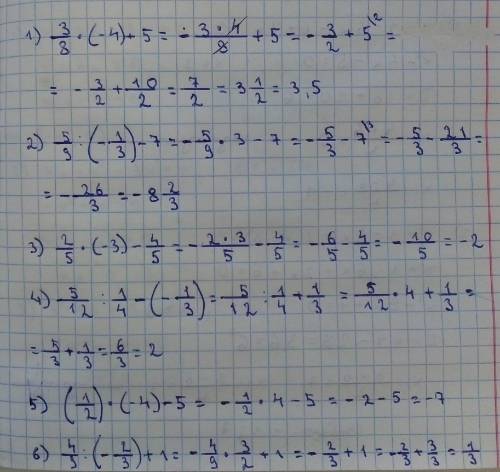 1) 3/8 · (-4) + 5 = - 3·4/8 + 5 = - 3/2 + 5\² =
= - 3/2 + 10/2 = 7/2 = 3 1/2 = 3,5
2) 5/9 : (- 1/3) - 7 = - 5/9 · 3 - 7 = - 5/3 - 7\³ = - 5/3 - 21/3 =
= - 26/3 = - 8 2/3
3) 2/5 · (-3) - 4/5 = - 2·3/5 - 4/5 = - 6/5 - 4/5 = - 10/5 = -2
4) 5/12 : 1/4 - (- 1/3) = 5/12 : 1/4 + 1/3 = 5/12 · 4 + 1/3 =
= 5/3 + 1/3 = 6/3 = 2
5) (1/2) · (-4) - 5 = - 1/2 · 4 - 5 = - 2 - 5 = -7
6) 4/9 : (- 2/3) + 1 = - 4/9 · 3/2 + 1 = - 2/3 + 1 = - 2/3 + 3/3 = 1/3